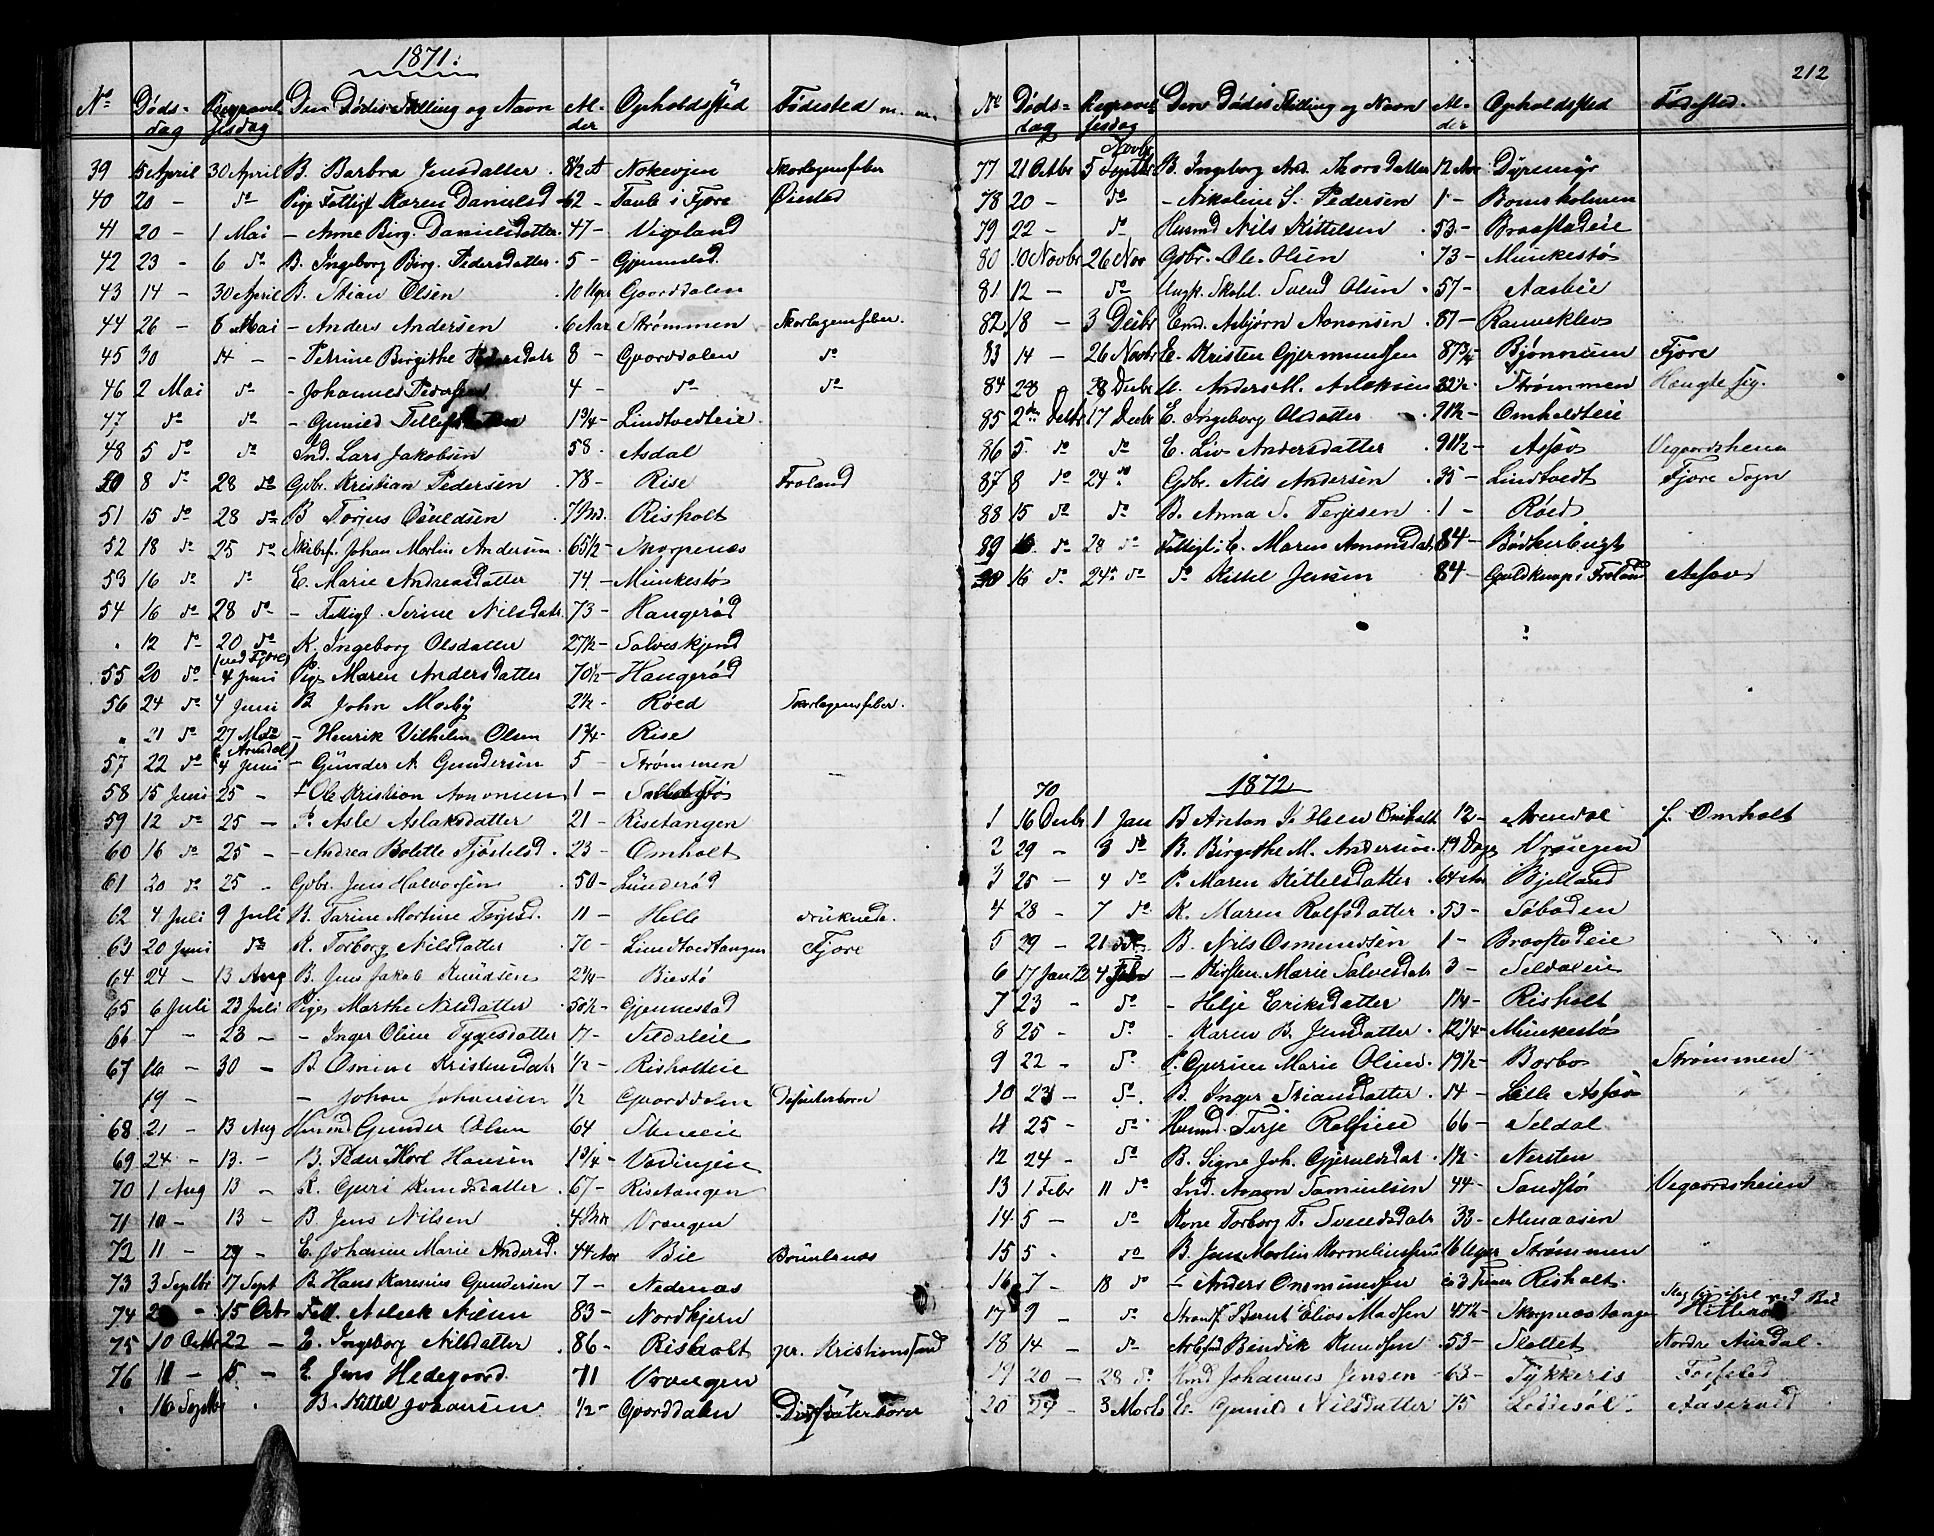 1871.
No Døds-dag Begravelsesdag Den Dødes Stilling og Navn Alder Opholdssted Fødested m. m.
39 5 April 30 April B. Barbra Jensdatter 8½ A Skarlagensfeber
40 20 - do Pige Fattigl. Karen Danielsd. 62 - Fjøre Øiestad
41 20 - 1 Mai - Anne Birg. Danielsdatter 47 - Vigeland
42 23 - 6 do B. Ingeborg Birg. Pedersdatter 5 - Gjennestad
43 14 - 30 April B. Stian Olsen 10 Uger Gaarddalen
44 26 - 8 Mai - Anders Andersen 6 Aar Strømmen Skarlagensfeber.
45 30 14 - - Petrine Birgithe Pedersdatr 8 - Gaarddalen do
46 2 Mai do - Johannes Pedersen 4 - do do
47 do do - Gunild Tellefsdatter 1¾ - Lindtvedteie
48 5 do do Ind. Lars Jakobsen 58 - Asdal
50 8 do 28 do Gbr. Kristian Pedersen 78 - Rise Froland
51 15 do 28 do B Torjus Osuldsen Risholt
52 18 do 25 do Johan Martin Andersen 65½ - Skarpenæs
53 16 do do E. Marie Andreasdatter 74 - Munkestø
54 16 do 28 do - Fattigl. Serine Nilsdatr. 73 - Haugerød
" 12 do 20 do (ved Fjøre) K. Ingeborg Olsdatter 27½ - Salveskjend
55 20 do 4 Juni Pige Maren Andersdatter 70½ - Haugerød
56 24 do 4 Juni B John Moeby 2½ - Røed Skarlagensfeber.
" 21 do 27 Mai (Arendal) - Henrik Vilhelm Olsen 1¾ - Rise
57 22 do 4 Juni - Gunder A. Gundersen 5 - Strømmen
58 15 Juni 25 - - Ole Kristian Aanonsen 1 -
59 12 do 25 - P. Asle Aslaksdatter 21 - Risetangen
60 16 do 25 - - Andrea Bolette Tjøstelsd. 23 - Omholt
61 20 do 25 - Gbr. Jens Halvorsen 50 - Lunderød
62 4 Juli 9 Juli B. Tarine Martine Terjesd. 11 - Helle druknede.
63 20 Juni do K. Torborg Nilsdatter 70 - Lindtvedtangen Fjøre
64 24 - 13 Aug B. Jens Jakob Knudsen 2¼ - Biestø
65 6 Juli 23 Juli Pige Marthe Nilsdatter 50½ - Gjennestad
66 7 - 23 - - Inger Oline Tygesdatter 17 - Seldaleie
67 16 - 30 - B Osmine Kristensdatr ½ - Risholteie
19 - - Johan Johansen ½ Gaarddalen Dissenterbarn
68 21 - 13 Aug Husmd Gunder Olsen 64
69 24 - 13 - B. Peder Karl Hansen 1¾ -
70 1 Aug 13 - K. Guri Knudsdatter 67 - Risetangen
71 10 - 13 - B. Jens Nilsen Vrangen
72 11 - 27 - E. Johanne Marie Andersd. 44 Aar Bie
73 3 Septbr 17 Sept B. Hans Karenius Gundersen 7 - Nedenæs
74 15 Octr Fatt. Aslak Nilsen 83 - Nordhjem
75 10 Octbr 22 - E. Ingeborg Nilsdatter 86 - Risholt pr. Kristianssand
76 11 - 15 - E Jens Hedegaard 71 Vrangen
" 16 Septbr " B. Kittel Johansen ½ - Gaarddalen
212
No Døds-dag Begravelsesdag Den Dødes Stilling og Navn Alder Opholdssted Fødested.
77 21 Octbr 5 Novbr B. Ingeborg And. Thorsdatter 12 Aar Dyremyr
78 20 - do - Nikoline S. Pedersen 1 - Bomsholmen
79 22 - do Husmd Nils Kittelsen 53 - Braastadeie
80 10 Novbr 26 Nov Gbr. Ole Olsen 73 - Munkestø
81 12 - do Ungk. Svend Olsen 57 - Aasbie
82 18 - 3 Decbr Emd. Asbjørn Aanonsen 87 - Ramseklev
83 14 - 26 Novbr E. Kristen Gjermundsen 87¾ - Bjønnum Fjøre
84 28 28 Decbr U. Anders M. Aslaksen 32½ - Strømmen Hængte sig.
85 2den Decbr 17 Decbr E. Ingeborg Olsdatter 91½ - Omholteie
86 5 do do E. Liv Andersdatter 91½ - Assav Vegaardsheien
87 8 do 24 do Gbr. Nils Andersen 35 - Lindtvedt Fjøre Sogn
88 15 do do B. Anna S. Terjesen 1 - Røed
89 16 do 28 do Fattigl. E. Maren Aanonsdatr 84 - Bødkerbugt
90 16 do 24 do do Kittel Jensen 84 - Guldknap i Froland Assav
1872
70
1 16 Decbr 1 Jan B 12 - Arendal f. Omholt
2 29 - 3 do B. Birgithe M. Andersen 19 Dage Vrængen
3 25 - 4 do P. Maren Kittelsdatter 64 Aar Bjelland
4 28 - 7 do K. Maren Rolfsdatter 53 - Søboden
5 29 - 21 do B. Nils Osmundsen 1 - Braastadeie
6 17 Jan 72 4 Febr - Kirsten Marie Salvesdatr 3 - Seldaleie
7 23 - do - Helje Eriksdatter 1¼ - Risholt
8 25 - do - Karen B. Jensdatter 12¼ - Munkestø
9 22 - do P. Gurine Marie Olsen 19½ - Barbo Strømmen
10 23 - do B. Inger Stiansdatter 14 - Lille Assav
11 25 - do Husmd. Terje Rolfsen 66 - Seldal
12 24 - do B. Signe Joh. Gjeruldsdat. 1½ - Nersten
13 1 Febr 11 do Ind. Aaavn Samuelsen 44 - Sandstø Vegaardsheien
14 5 - do Kone Torborg T. Svendsdatr 33 - Almaasen
15 5 do B. Jens Martin Korneliussen 16 Uger Strømmen
16 7 - 18 do - Anders Ommundsen 3 Timer Risholt
17 9 - do Bernt Elias Madsen 47½ - Skarpnæstangen Hitterø
18 14 - do Arbsmd Bendik Knudsen 53 - Slottet Nordre Aurdal.
19 20 - 28 do Emd Johannes Jensen 63 - Tykkeris
20 27 - 3 Marts E. Gunild Nilsdatter 75 Løddesøl Aaseral